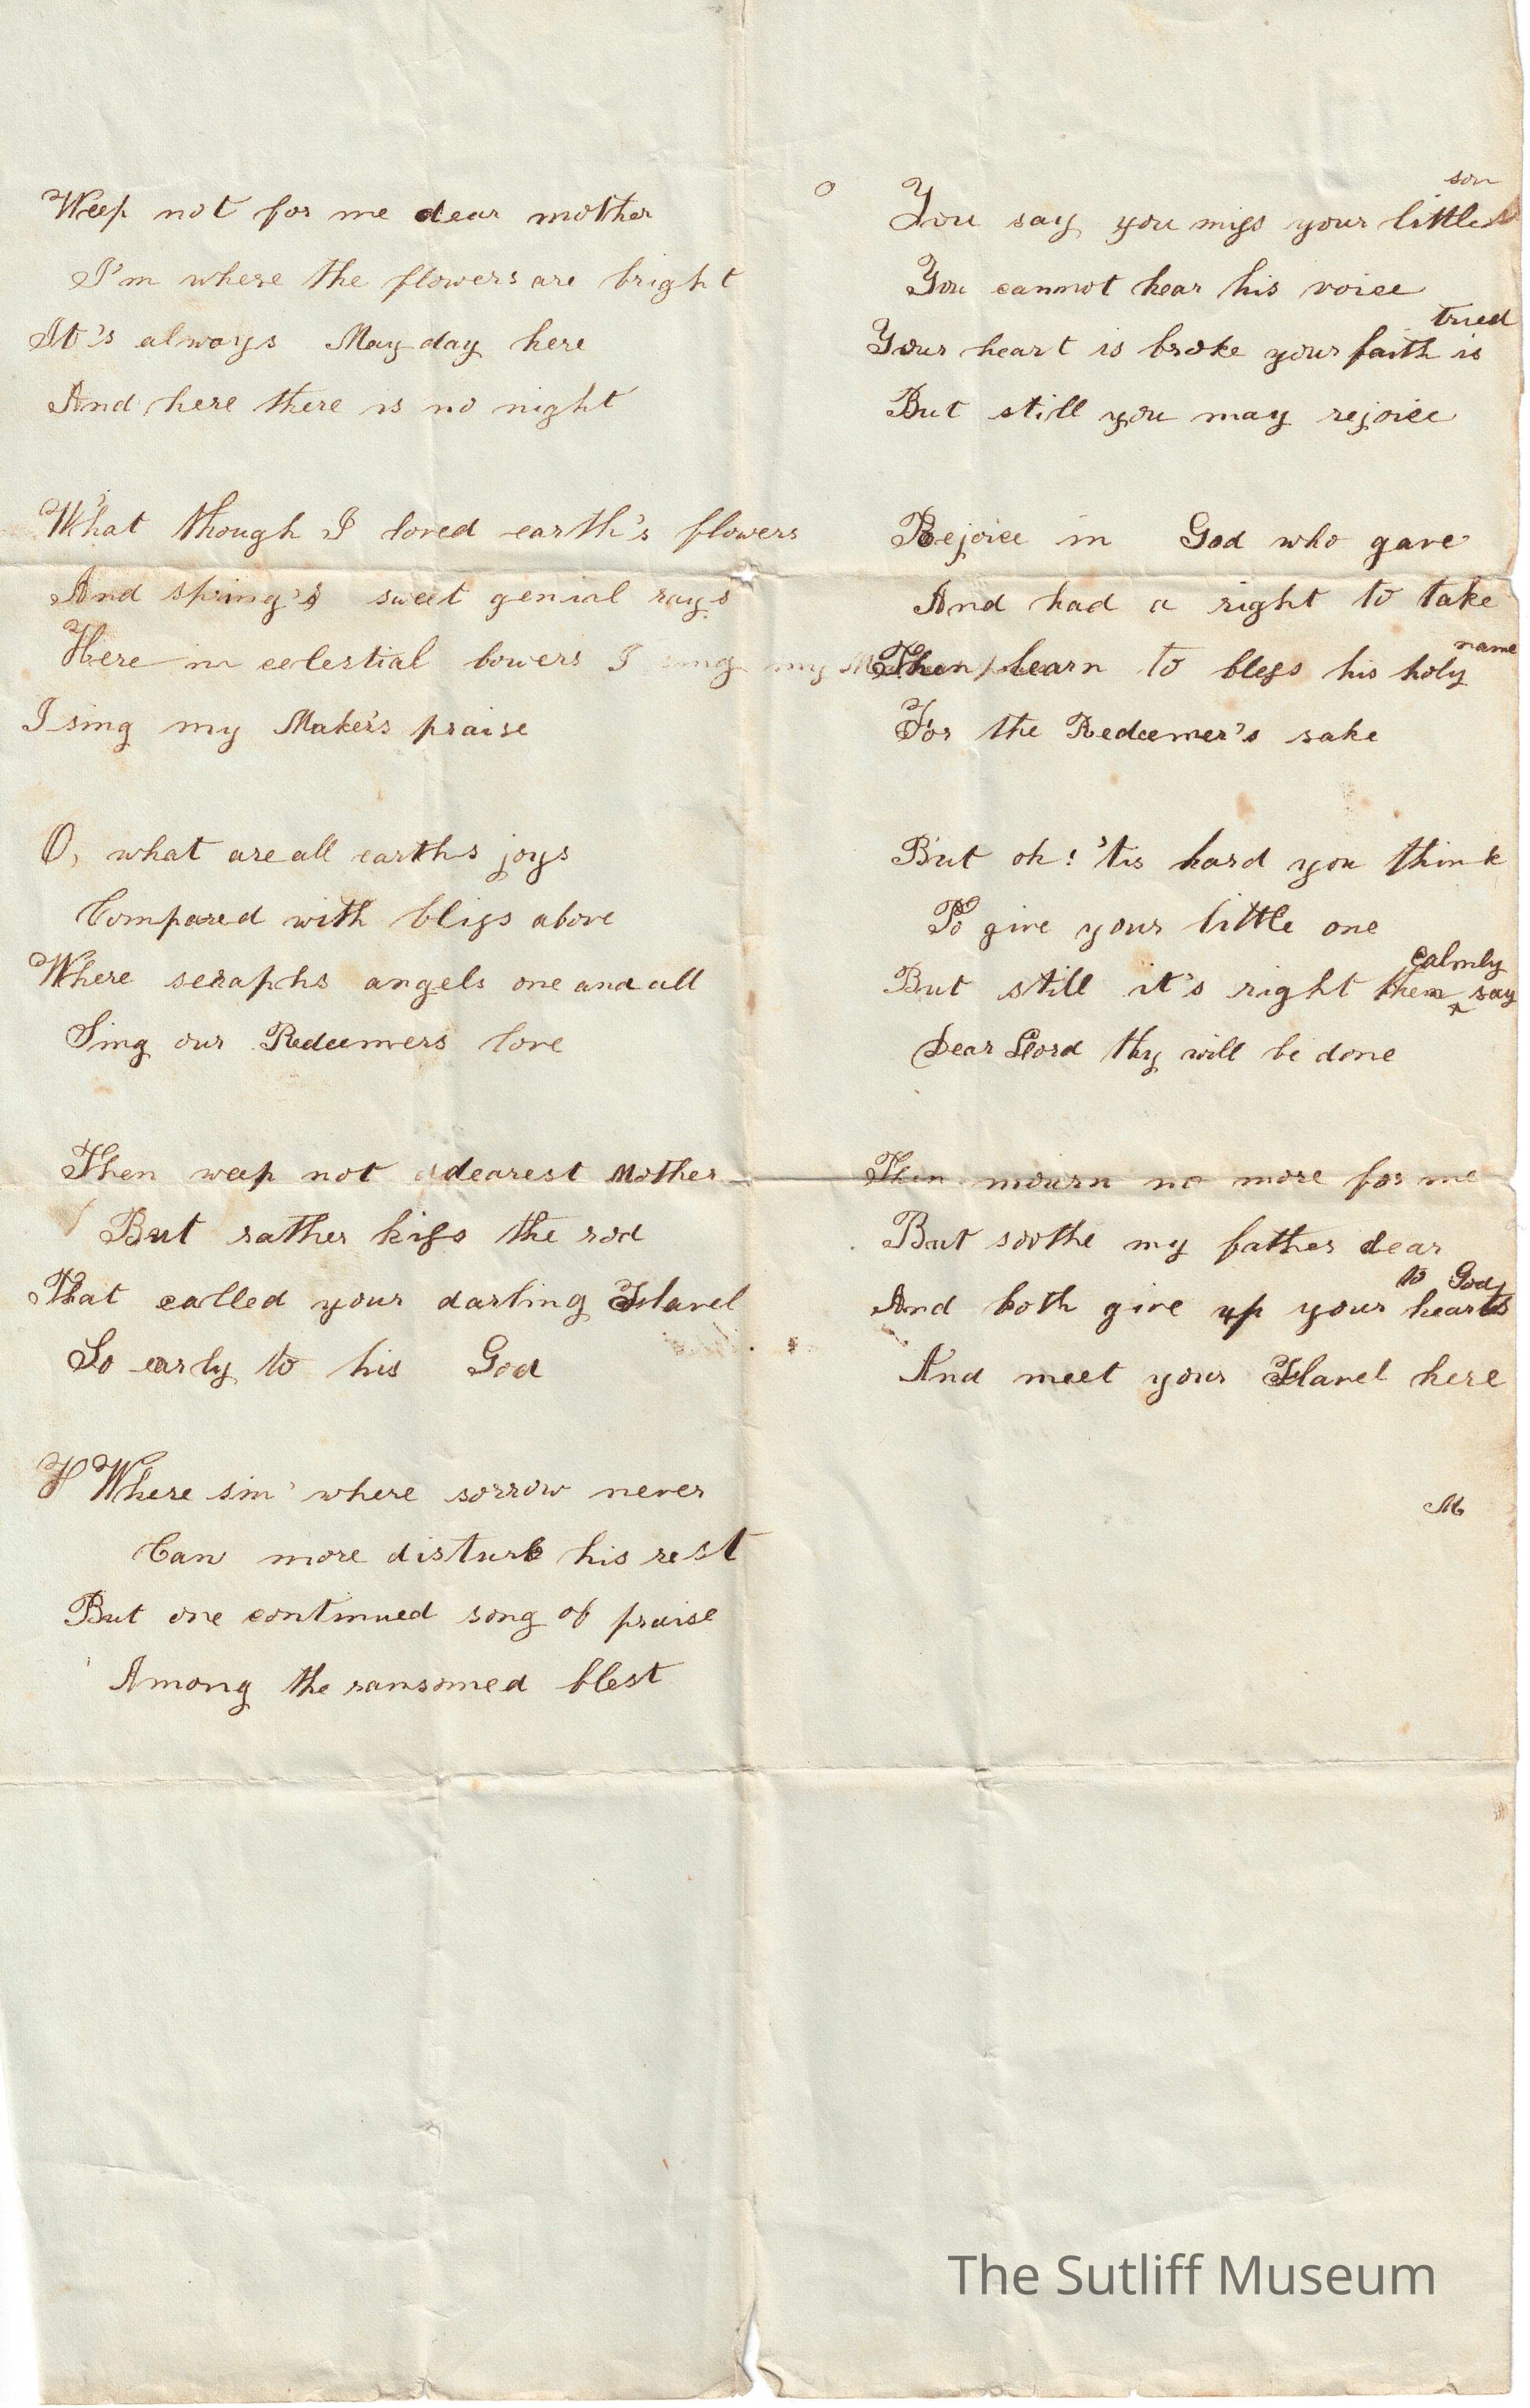 Weep not for me dear mother
I'm where the flowers are bright
It's always May day here
And here there is no night
What though I loved earth's flowers
And spring's sweet genial rays
Here in celestial bowers I sing my
I sing my Maker's praise
O, what are all earths joys
Compared with bliss above
Where seraphs angels one and all
Sing our Redeemers love
Then weep not dearest Mother
But rather kiss the rod
That called your darling Flavel
So early to his God
Where sin where sorrow never
Can more disturb his rest
But one continued song of praise
Among the ransomed blest
You say you miss your little son
You cannot hear his voice
Your heart is broke your faith is tried
But still you may rejoice
Rejoice in God who gave
And had a right to take
Then learn to bless his holy name
For the Redeemer's sake
But oh! 'tis hard you think
To give your little one
But still it's right then calmly say
Dear Lord thy will be done
Then mourn no more for me
But soothe my father dear
And both give up your hearts to God
And meet your Flavel here
M
The Sutliff Museum